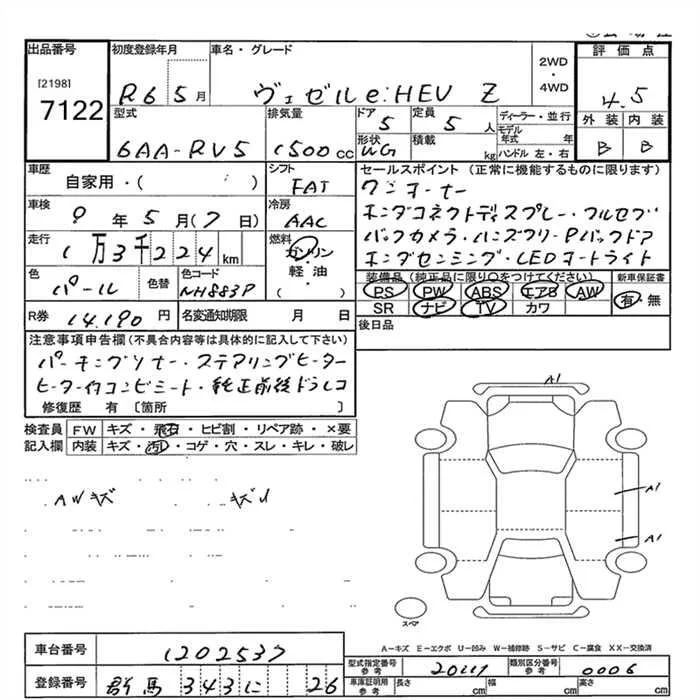 出品番号
[2198]
7122
初度登録年月
R6 5月
車名・グレード
ヴェゼル e:HEV Z
2WD
・
4WD
評価点
4.5
外装 内装
B B
型式
6AA-RV5
排気量
1500cc
ドア
5
定員
5人
形状
WG
積載
kg
ディーラー・並行
モデル年式 年
ハンドル 左・右
車歴
自家用・( )
シフト
FAT
車検
9年5月(7日)
冷房
AAC
走行
1万3千224km
燃料
ガソリン
・
軽油
( )
色
パール
色替
色コード
NH883P
R券
14,190円
名変通知期限 月 日
セールスポイント(正常に機能するものに限ります)
ワンオーナー
ホンダコネクトディスプレー・フルセグ
バックカメラ・ハンズフリーPバックドア
ホンダセンシング・LEDオートライト
装備品(純正品に限り○をつけてください)
PS PW ABS エアB AW
SR ナビ TV カワ
新車保証書
有・無
後日品
注意事項申告欄(不具合内容等は具体的に記入して下さい)
パーキングソナー・ステアリングヒーター
ヒーター付コンビシート・純正前後ドラレコ
修復歴 有 [箇所 ]
検査員
記入欄
FW キズ・飛石・ヒビ割・リペア跡・×要
内装 キズ・汚れ・コゲ・穴・スレ・キレ・破レ
AWキズ
A1
A1
A1
スペア
A-キズ E-エクボ U-凹み W-補修跡 S-サビ C-腐食 XX-交換済
車台番号
1202537
登録番号
群馬 343 に 26
型式指定番号
参考
20117
類別区分番号
参考
0006
車庫証明用
参考
長さ cm
幅 cm
高さ cm